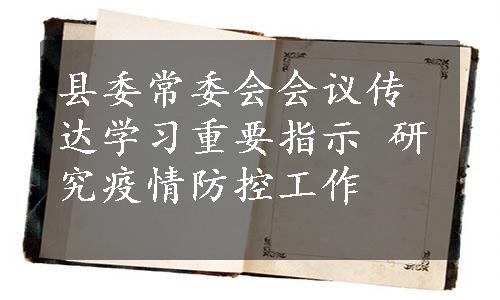 县委常委会会议传
达学习重要指示 研
究疫情防控工作